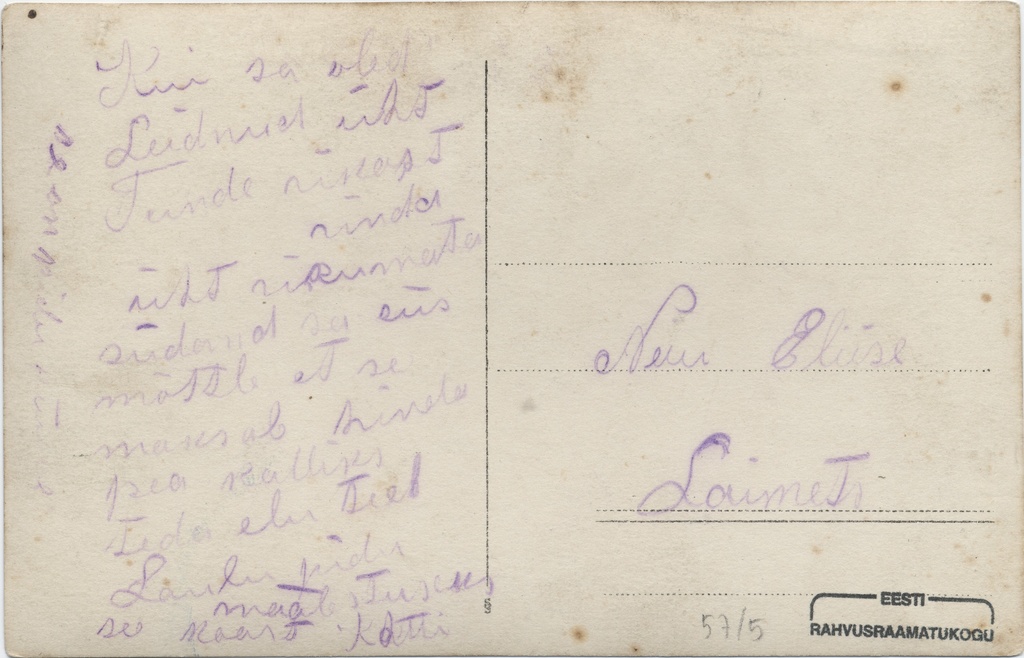 Kui sa oled
Leidnud üht
Tunde rikast
rinda
üht rikumata
südand sa siis
mõttle et se
maksab hinda
pea kalliks
teda elu teel
Laulu pidu
mäalestuseks
se kaart Katti
Neiu Eliise
Laimets
57/5
EESTI
RAHVUSRAAMATUKOGU